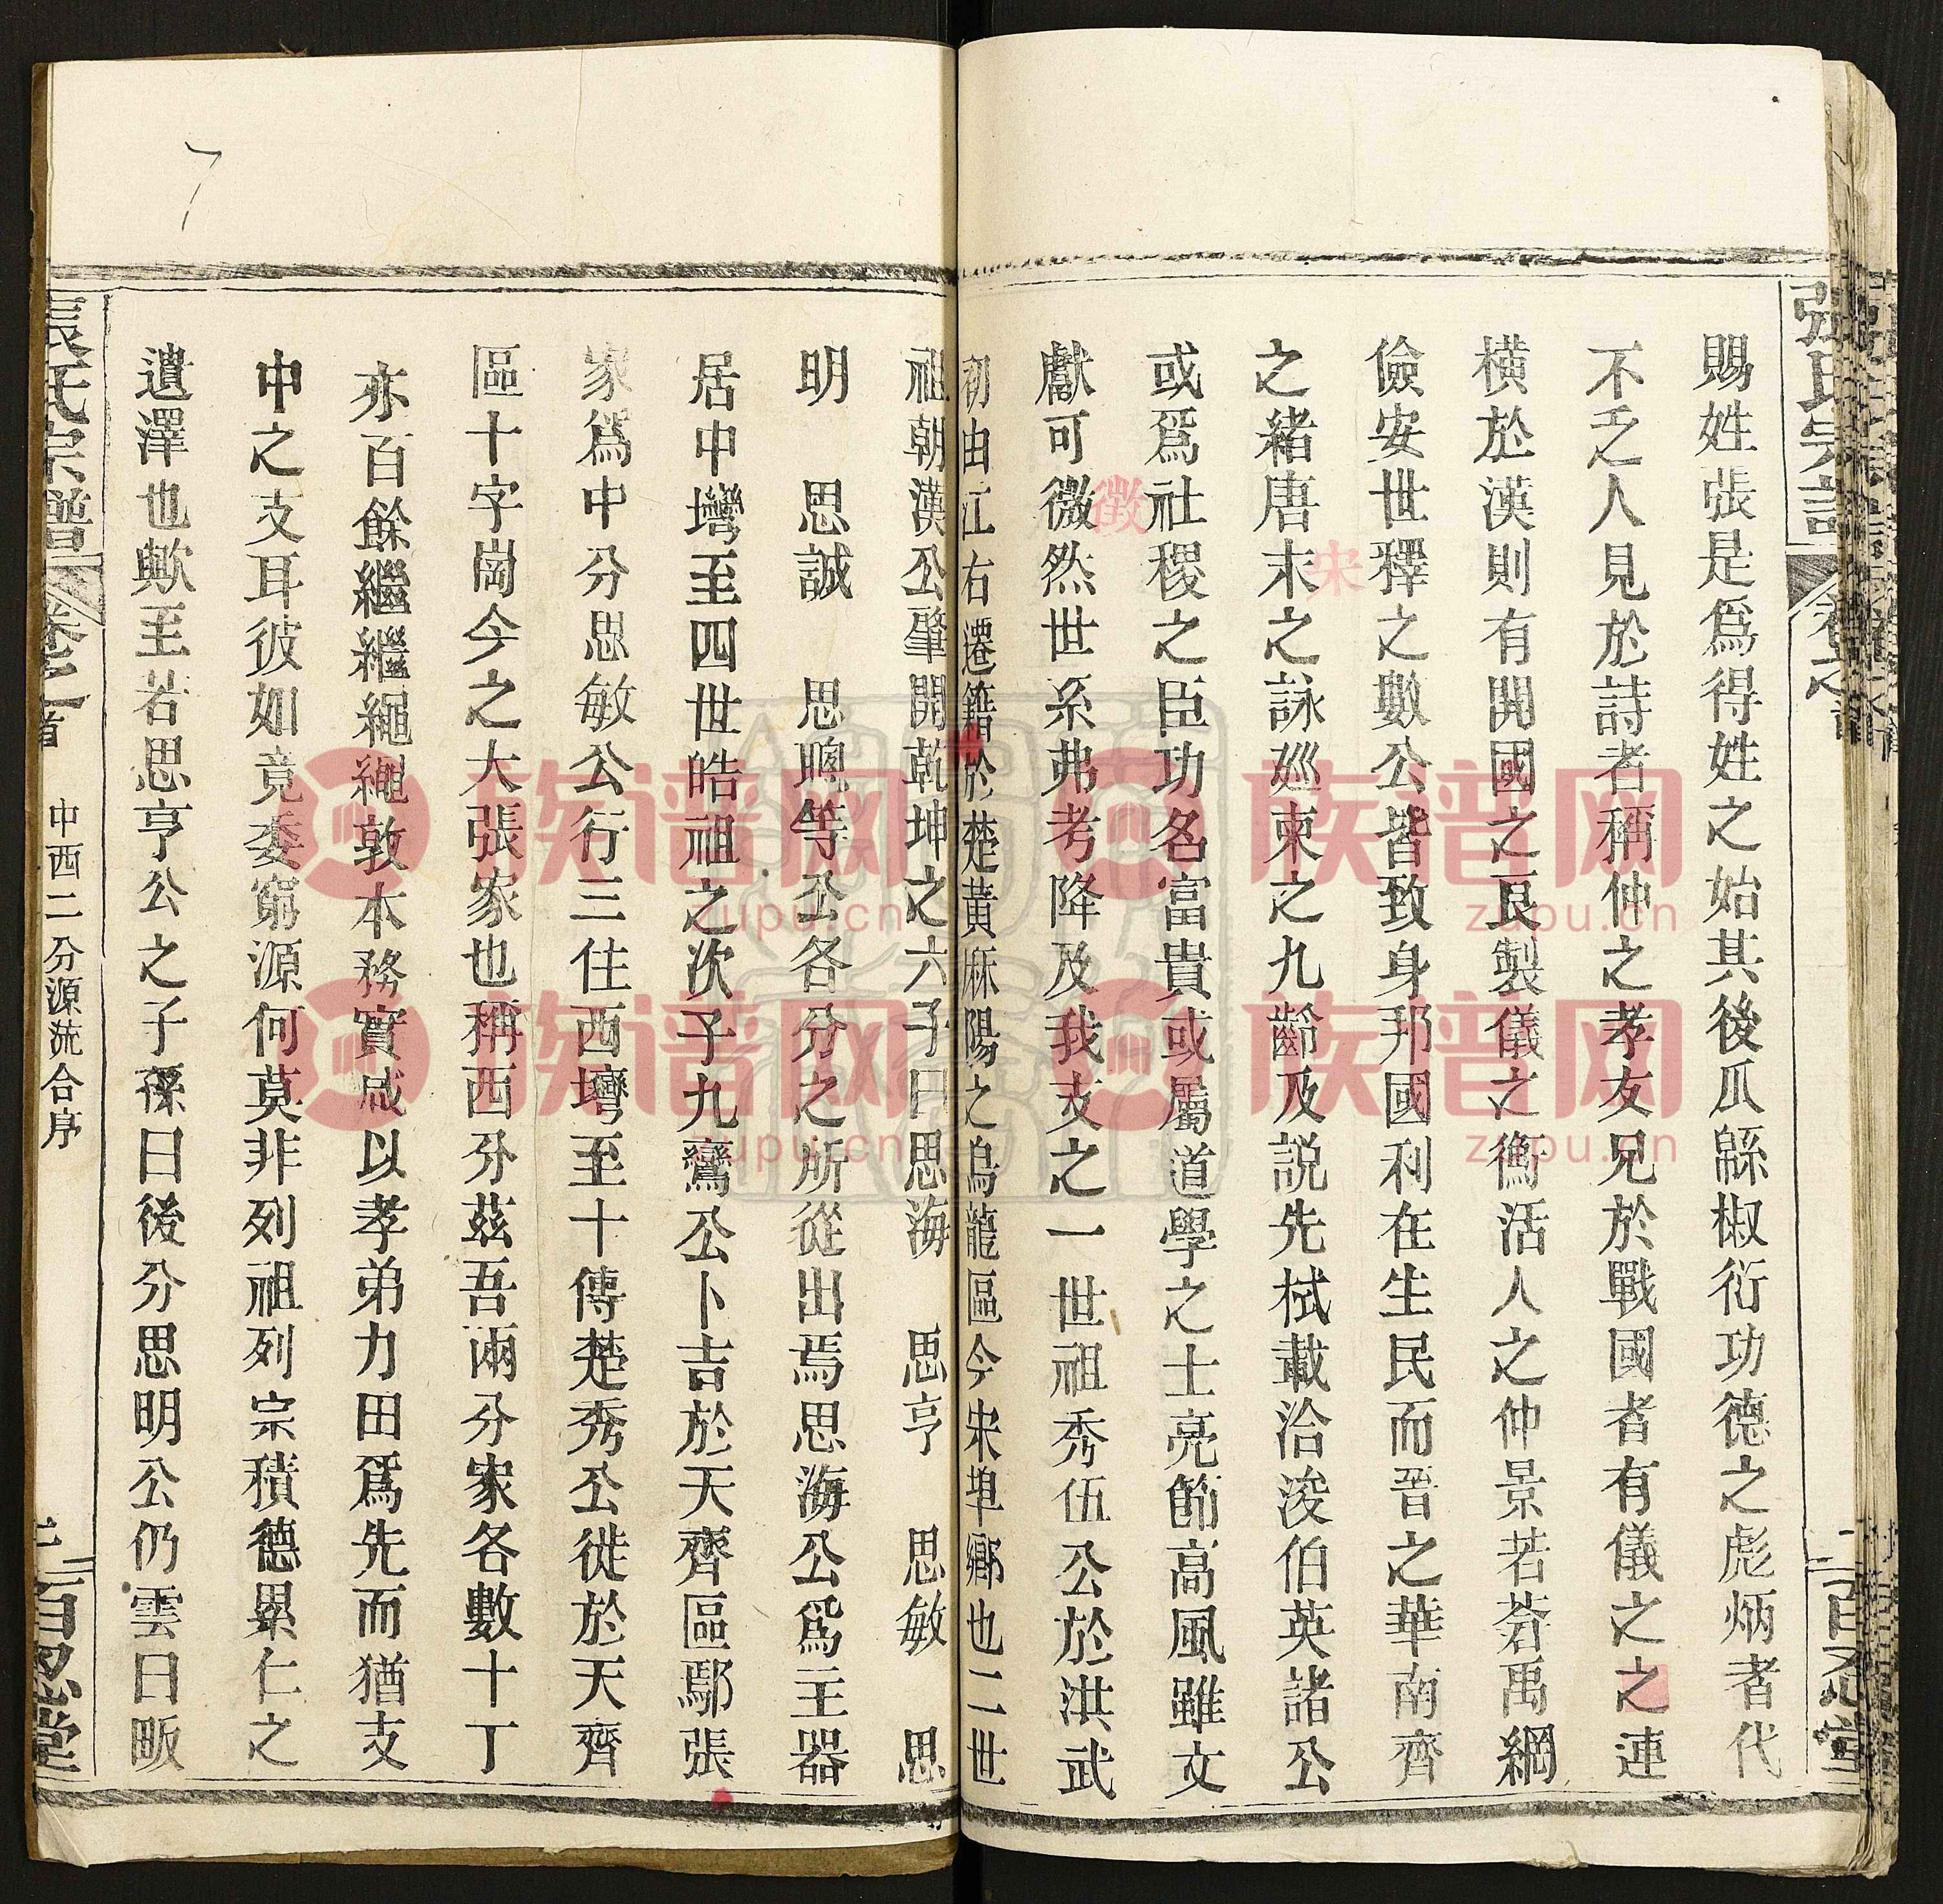 張氏宗譜
卷之首
百忍堂
賜姓張是爲得姓之始其後瓜緜椒衍功德之彪炳者代
不乏之人見於詩者稱仲之孝友兄於戰國者有儀之之連
横於漢則有開國之良製儀之衡活人之仲景若蒼禹綱
儉安世釋之數公皆致身邦國利在生民而晉之華南齊
之緒唐末之詠巡東之九齡及説先栻載洽浚伯英諸公
宋
或爲社稷之臣功名富貴或屬道學之士亮節高風雖文
徵
獻可微然世系弗考降及我支之一世祖秀伍公於洪武
初由江右遷籍於楚黃麻陽之烏龍區今宋埠鄉也二世
祖朝漢公肇開乾坤之六子曰思海 思亨 思敏 思
明 思誠 思聰等公各分之所從出焉思海公爲主器
居中壪至四世皓祖之次子九鸞公卜吉於天齊區鄢張
家爲中分思敏公行三住西壪至十傳楚秀公徙於天齊
區十字崗今之大張家也稱西分茲吾兩分家各數十丁
亦百餘繼繼繩繩敦本務實咸以孝弟力田爲先而猶支
中之支耳彼如竟委窮源何莫非列祖列宗積德累仁之
遺澤也歟至若思亨公之子孫曰後分思明公仍雲曰畈
張氏宗譜
卷之首
中西二分源流合序
百忍堂
族谱网
zupu.cn
族谱网
zupu.cn
族谱网
zupu.cn
族谱网
zupu.cn